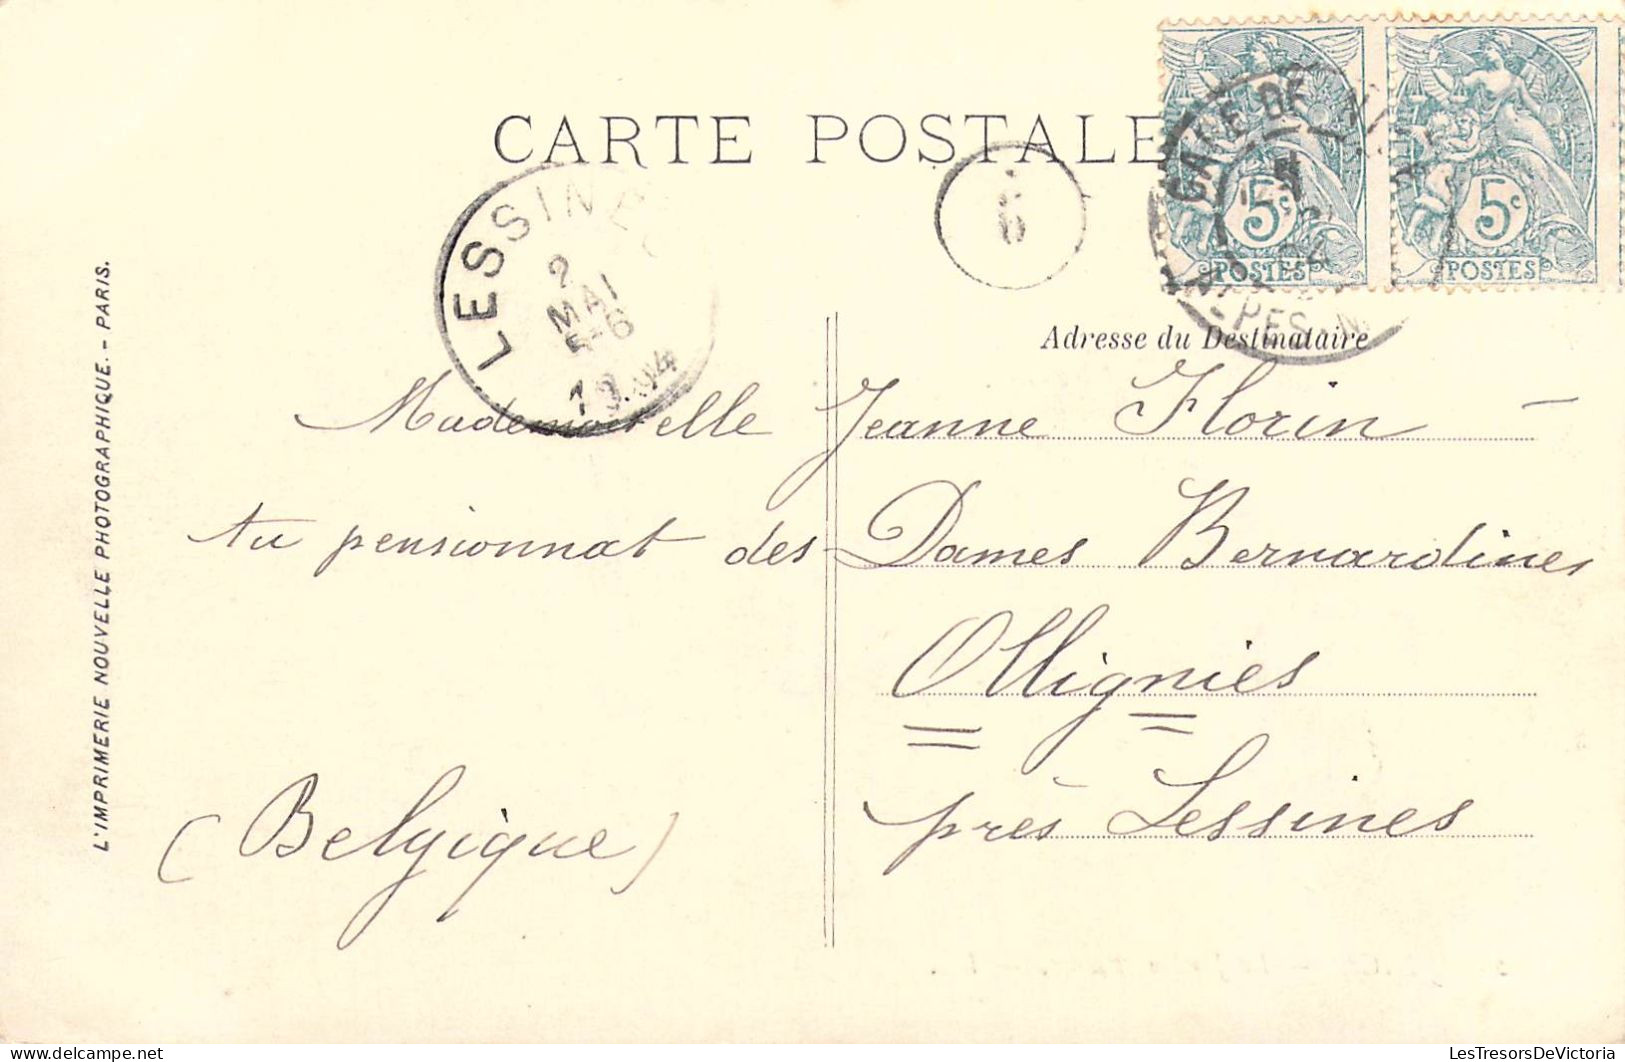 CARTE POSTALE
LESSINES
2
MAI
5-6
1904
6
GARE DE
5c
POSTES
5c
POSTES
Adresse du Destinataire
L'IMPRIMERIE NOUVELLE PHOTOGRAPHIQUE. - PARIS.
Mademoiselle Jeanne Florin
Au pensionnat des Dames Bernardines
Ollignies
près Lessines
(Belgique)
LesTresorsDeVictoria